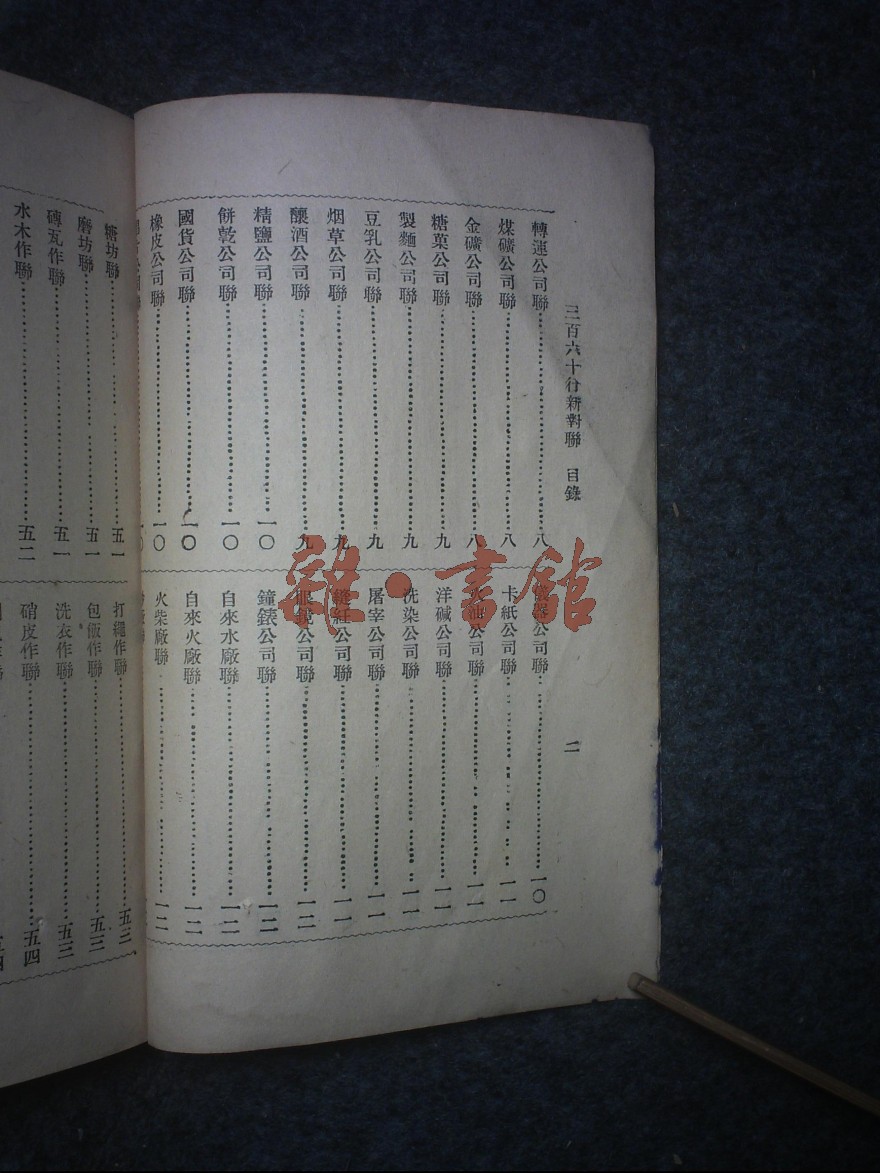 三百六十行新對聯 目錄 二
轉運公司聯 八
煤礦公司聯 八
金礦公司聯 八
糖菓公司聯 九
製麵公司聯 九
豆乳公司聯 九
烟草公司聯 九
釀酒公司聯 九
精鹽公司聯 一〇
餅乾公司聯 一〇
國貨公司聯 一〇
橡皮公司聯 一〇
儀器公司聯 一〇
卡紙公司聯 一一
火油公司聯 一一
洋碱公司聯 一一
洗染公司聯 一一
屠宰公司聯 一一
縫紅公司聯 一一
眼鏡公司聯 一二
鐘錶公司聯 一二
自來水廠聯 一二
自來火廠聯 一二
火柴廠聯 一二
糖坊聯 五一
磨坊聯 五一
磚瓦作聯 五一
水木作聯 五二
打繩作聯 五三
包飯作聯 五三
洗衣作聯 五三
硝皮作聯 五四
雜·書館